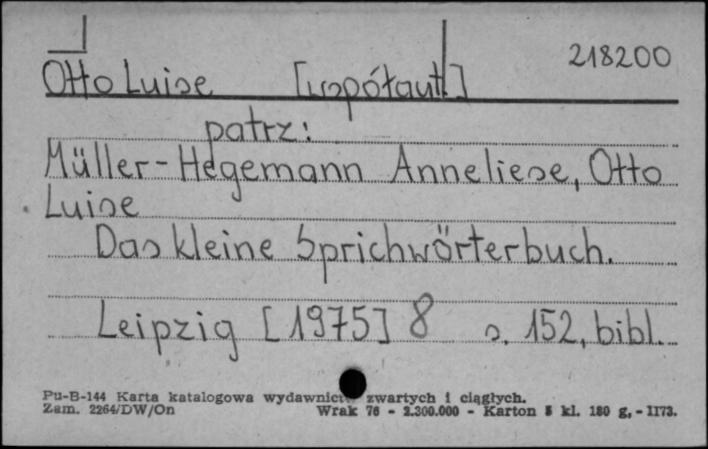 218200
Otto Luise [współaut.]
patrz:
Müller-Hegemann Anneliese, Otto
Luise
Das kleine Sprichwörterbuch.
Leipzig [1975] 8 s. 152, bibl.
Pu-B-144 Karta katalogowa wydawnictw zwartych i ciągłych.
Zam. 2264/DW/On Wrak 76 - 2.300.000 - Karton kl. 180 g, - II73.